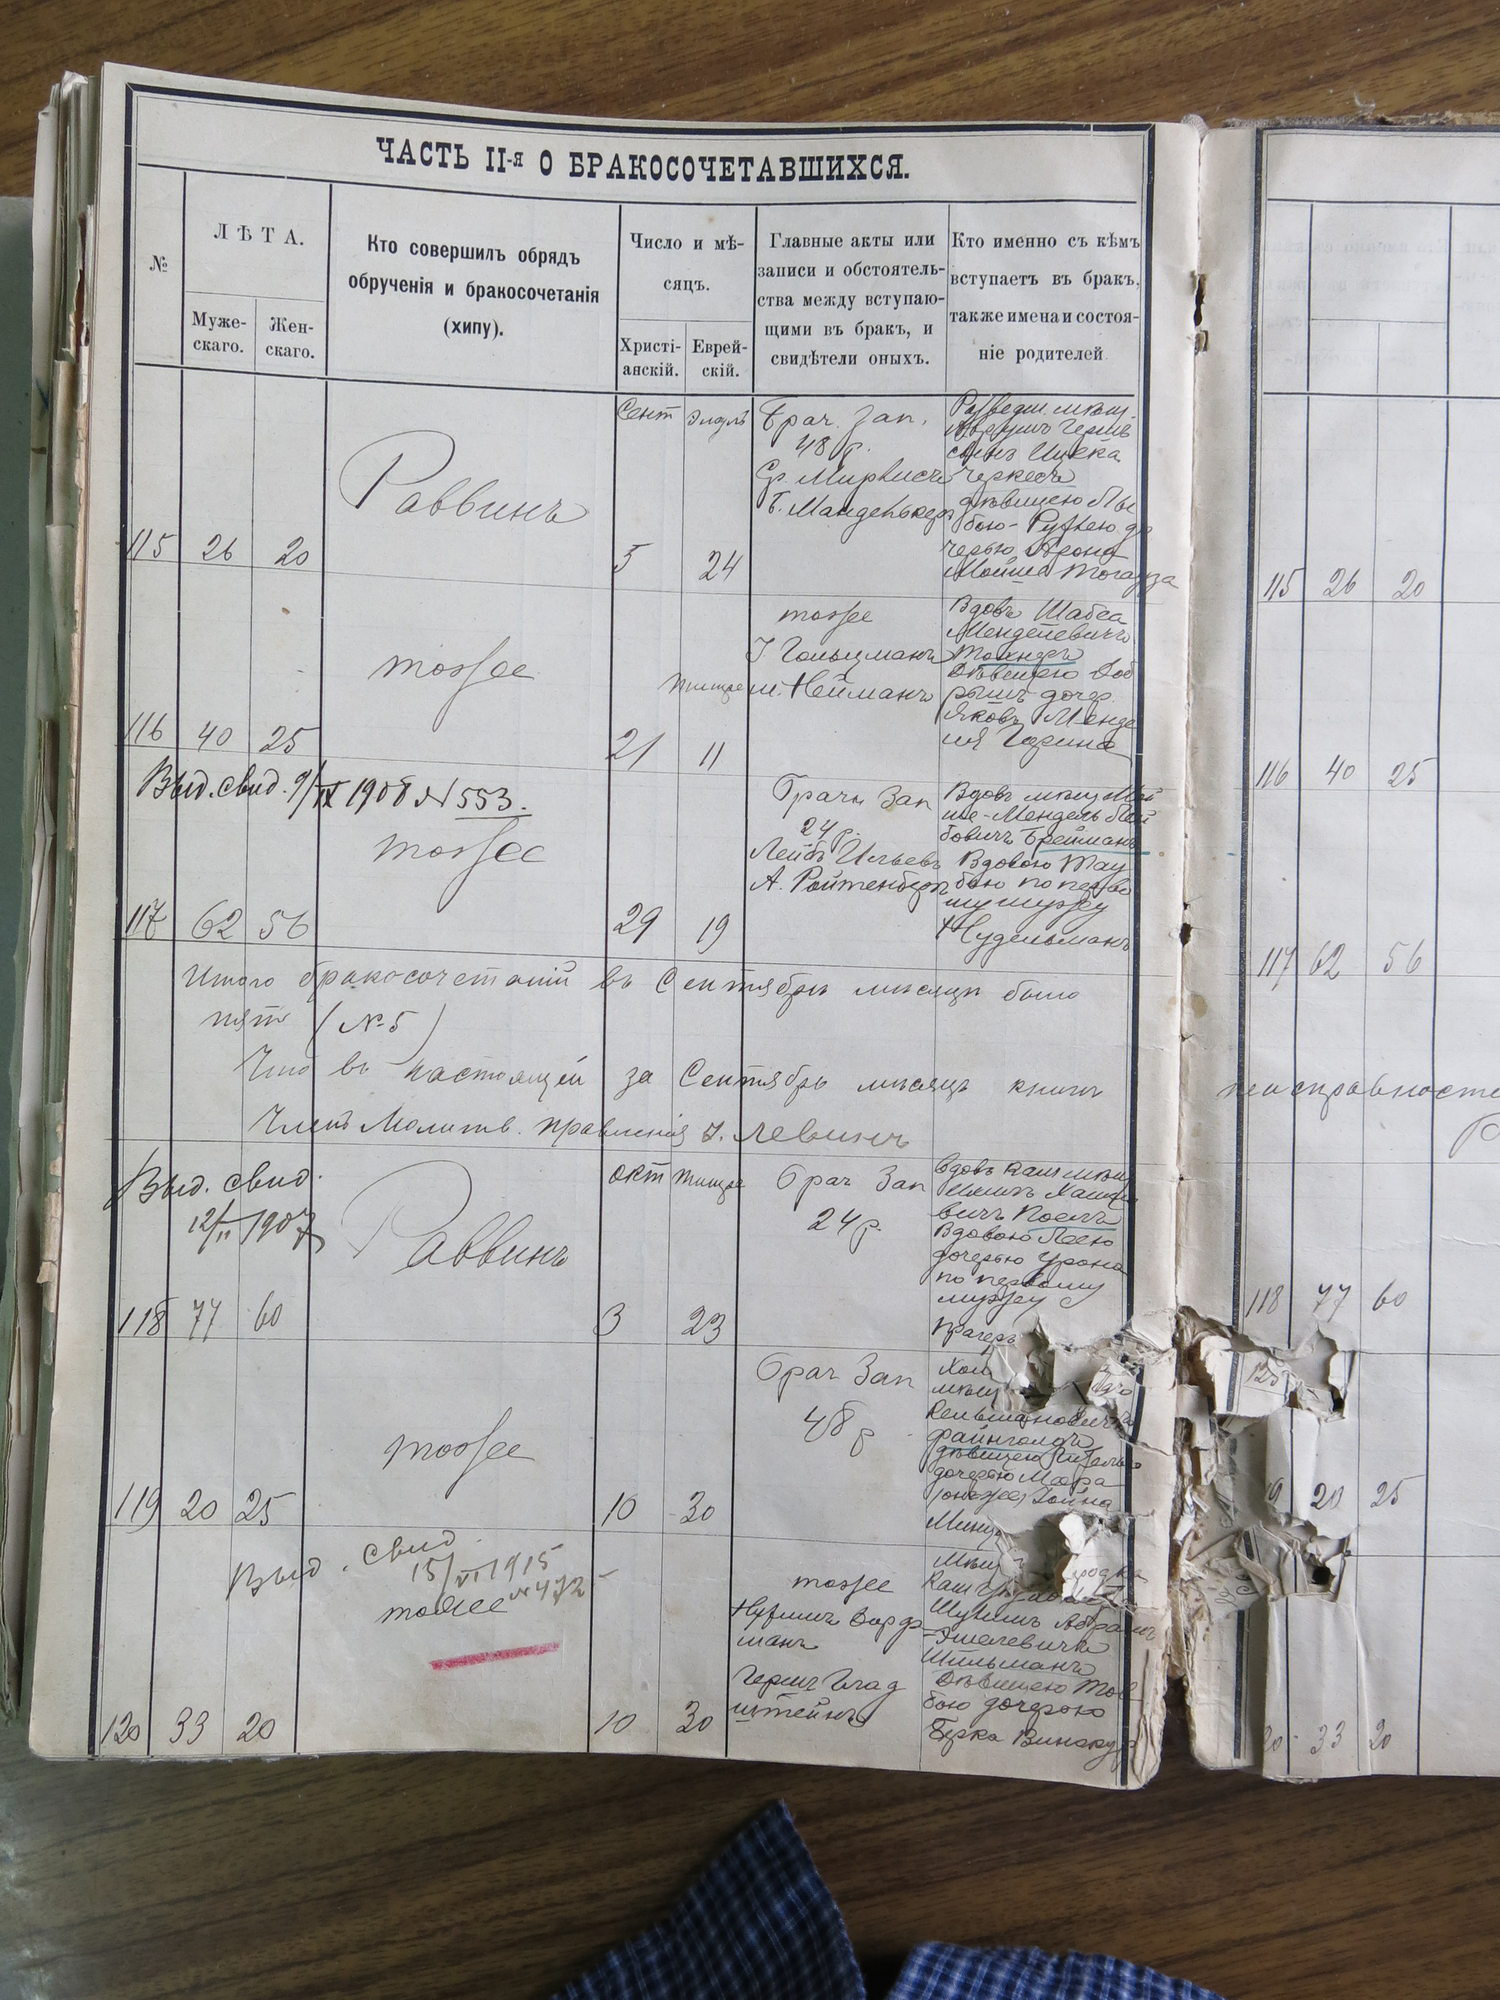 ЧАСТЬ II-я О БРАКОСОЧЕТАВШИХСЯ.
№
ЛѢТА.
Муже-
скаго.
Жен-
скаго.
Кто совершилъ обрядъ
обрученія и бракосочетанія
(хипу).
Число и мѣ-
сяцъ.
Христі-
анскій.
Еврей-
скій.
Главные акты или
записи и обстоятель-
ства между вступаю-
щими въ бракъ, и
свидѣтели оныхъ.
Кто именно съ кѣмъ
вступаетъ въ бракъ,
также имена и состоя-
ніе родителей
115 26 20
Раввинъ
Сент Элулъ
5 24
Брач. Зап.
48 р.
Ср. Мирвисъ
Разведш. мѣщ.
сынъ Ицека
Черкесъ
дѣвицею Лы
бою-Рузею до
черью Арона
Мойша
116 40 25
тоже
Тишре
21 11
тоже
І. Гольцманъ
Ш. Нейманъ
Вдовъ Шабса
Менделевичъ
дѣвицею Доб
рышъ дочер.
Яковъ Менде
ля
Выд. свид. 9/IX 1908 № 553.
117 62 56
тоже
29 19
Брачн Зап
24 р.
Лейбъ Ильевъ
А. Ройтенберг
Вдовъ мѣщ Мой
ше-Мендель Лей
бовичъ Брейманъ
Вдовою Тау
бою по перво
му мужу
Нудельманъ
Итого бракосочетаній въ Сентябрѣ мѣсяцѣ было
пять (№ 5)
Что въ настоящей за Сентябрь мѣсяцъ книгѣ
неисправносте
Членъ Молитв. правленія І. Левинъ
Выд. свид.
12/II 1907
118 77 60
Раввинъ
окт Тишре
3 23
Брач Зап
24 р.
Вдовъ Каш мѣщ
вичъ
Вдовою Леею
дочерью Урона
по первому
мужеу
119 20 25
тоже
10 30
Брач Зап
48 р
Хол
мѣщ
Кельмановичъ
Файнголдъ
дѣвицею
дочерью
Выд. свид.
15/VI 1915
№ 472
120 33 20
тоже
10 30
тоже
Нухимъ Дорф-
манъ
Гершъ Глад
штейнъ
Мѣщ
Шулимъ Абрамъ
-Эшелевичъ
Шильманъ
дѣвицею Тов
бою дочерью
Берка Винокур
115 26 20
116 40 25
117 62 56
118 77 60
20 25
33 20